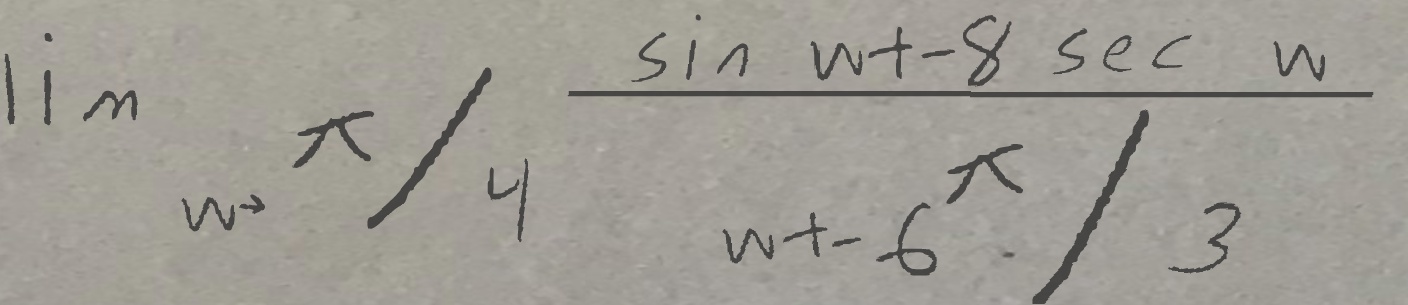 lim w→ π/4 (sin w+-8 sec w)/(w+-6 π/3)